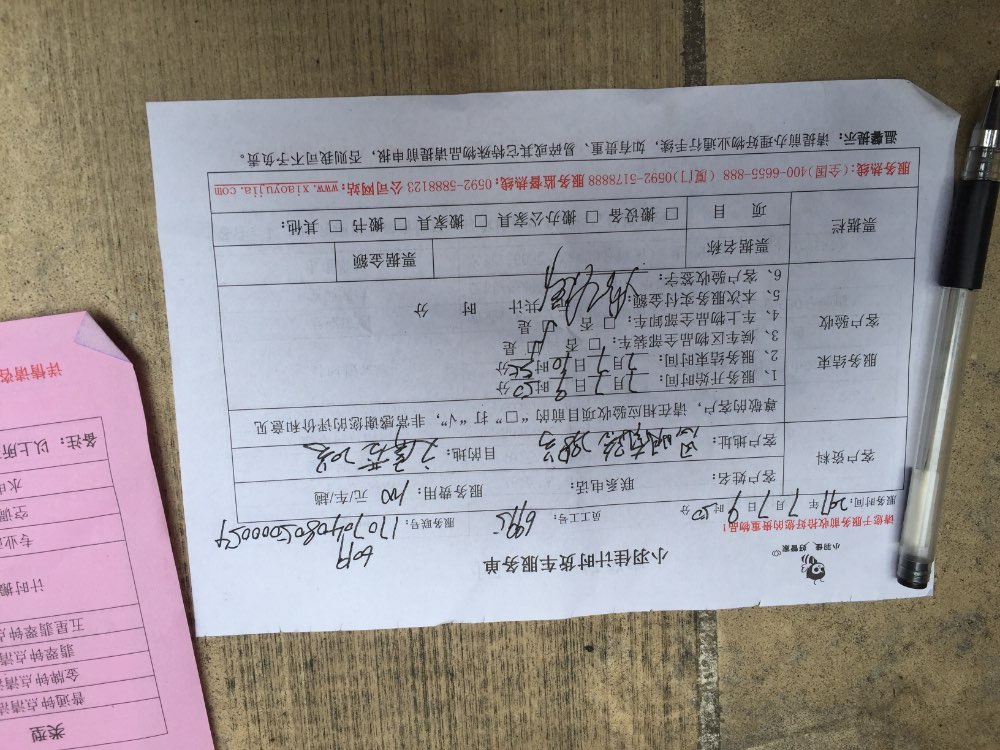 小羽佳 好管家
小羽佳计时货车服务单
请您于服务前收拾好您的贵重物品!
60元
服务时间: 2017 年 7 月 7 日 9 时 50 分 员工号: 服务联号:
客户资料
客户姓名: 联系电话: 服务费用: 100 元/车/趟
客户地址: 目的地:
尊敬的客户, 请在相应验收项目前的“□”打“√”, 非常感谢您的评价和意见
服务结束
客户验收
1、服务开始时间: 7 月 7 日 9 时 50 分
2、服务结束时间: 7 月 7 日 10 时 50 分
3、候车区物品全部装车: □ 否 □ 是
4、车上物品全部卸车: □ 否 □ 是
5、本次服务实付金额: 共计 时 分
6、客户验收签字:
票据栏
票据名称 票据金额
项 目 □ 搬设备 □ 搬办公家具 □ 搬家具 □ 搬书 □ 其他:
服务热线:(全国)400-6655-888 (厦门)0592-5178888 服务监督热线:0592-5888123 公司网站: www.xiaoyujia.com
温馨提示: 请提前办理好物业通行手续, 如有贵重、易碎或其它特殊物品请提前申报, 否则我司不予负责。
类型
普通钟点清洁
金牌钟点清洁
翡翠钟点清
五星翡翠钟点
计时搬
专业
空调
水电
备注: 以上所
详情请咨